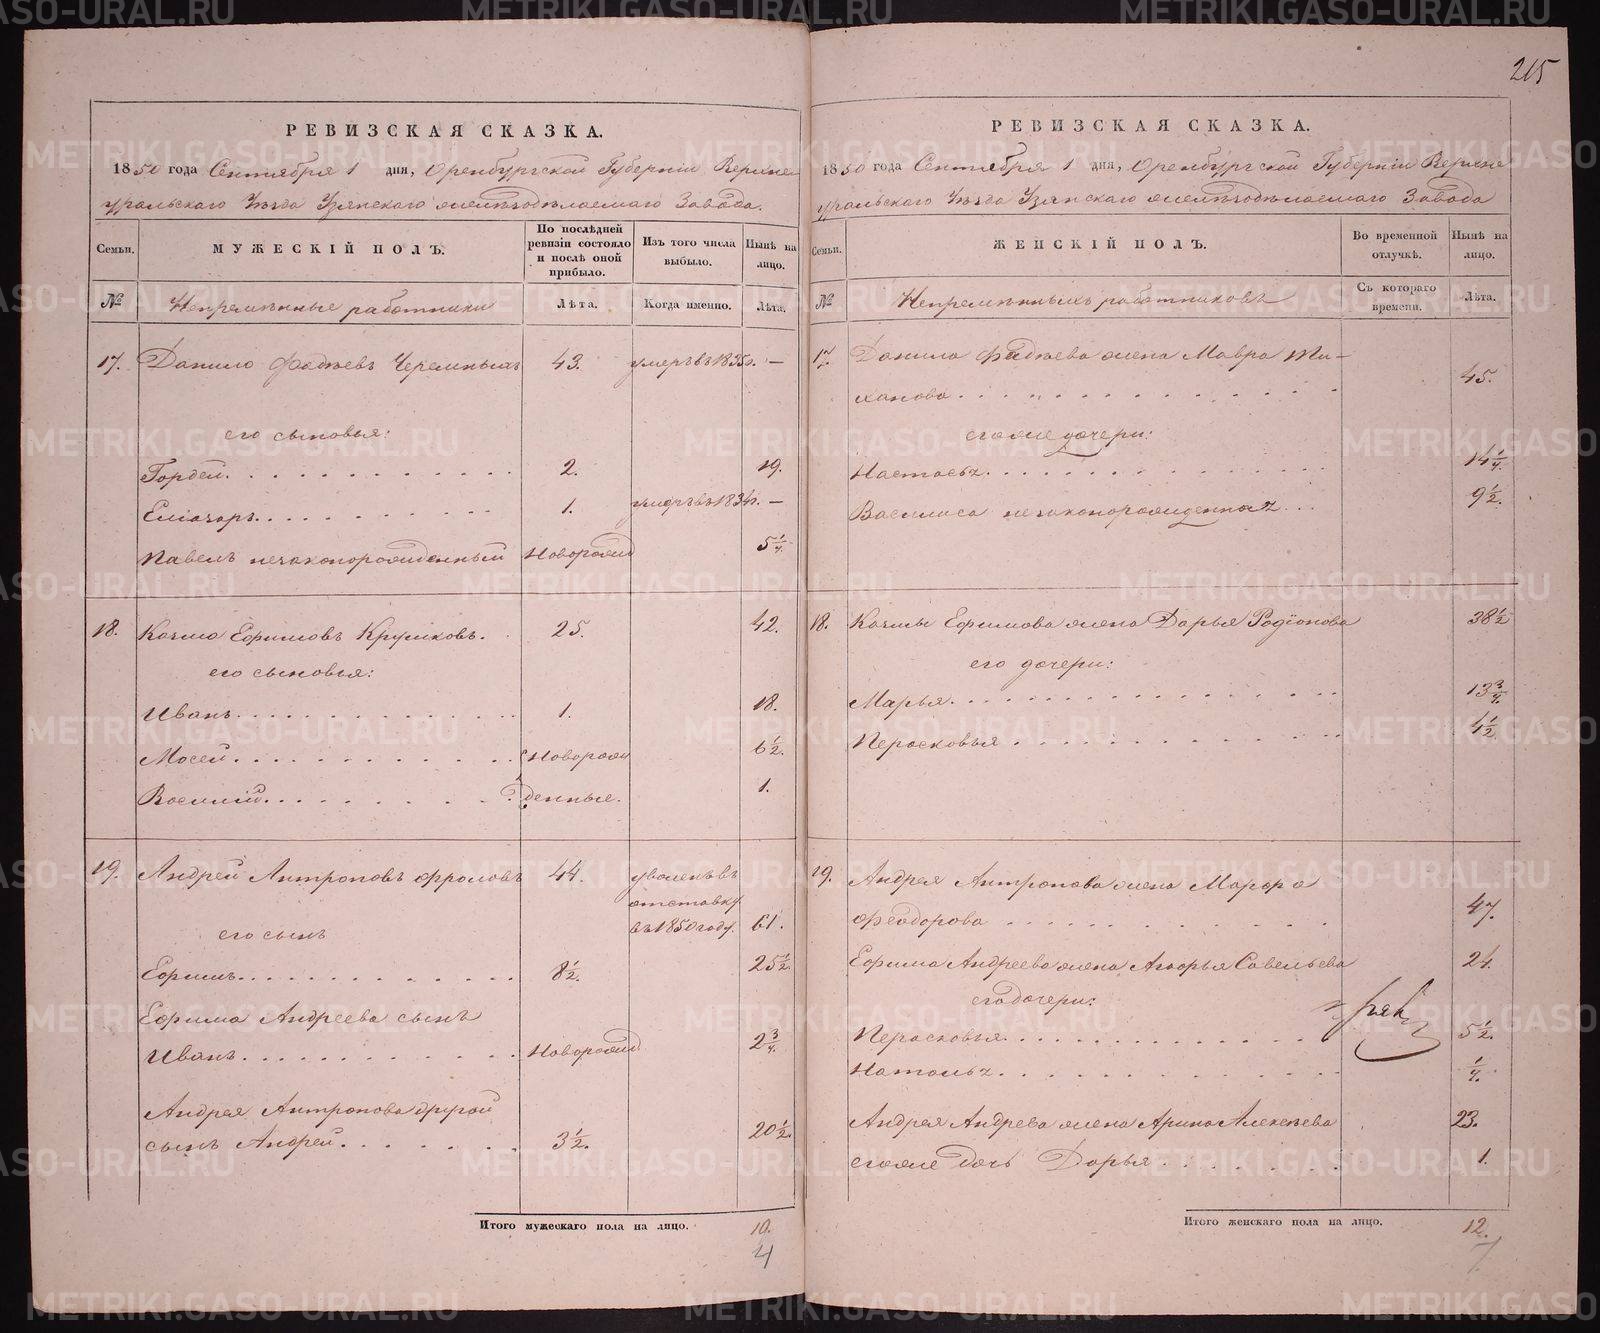 215
РЕВИЗСКАЯ СКАЗКА.
1850 года Сентября 1 дня, Оренбургской Губернiи Верхне
уральскаго Уѣзда Узянскаго желѣзодѣлаемаго Завода.
Семьи. МУЖЕСКІЙ ПОЛЪ. По послѣдней ревизіи состояло и послѣ оной прибыло. Изъ того числа выбыло. Нынѣ на лицо.
№ Непремѣнные работники Лѣта. Когда именно. Лѣта.
17. Данило Фадѣевъ Черемныхъ 43. умеръ въ 1835г. —
его сыновья:
Гордей. 2. 19.
Елiазаръ. 1. умеръ въ 1834г. —
Павелъ незаконорожденный Новорожд 5 1/4.
18. Козма Ефимовъ Крумковъ. 25. 42.
его сыновья:
Иванъ. 1. 18.
Мосей. Новорож 6 1/2.
Василiй. денные. 1.
19. Андрей Антроповъ Фроловъ 44. уволенъ въ
отставку
его сынъ въ 1850 году. 61.
Ефимъ. 8 1/2. 25 1/2.
Ефима Андреева сынъ
Иванъ. Новорожд 2 3/4.
Андрея Антропова другой
сынъ Андрей. 3 1/2. 20 1/2.
Итого мужескаго пола на лицо. 10.
4
РЕВИЗСКАЯ СКАЗКА.
1850 года Сентября 1 дня, Оренбургской Губернiи Верхне
уральскаго Уѣзда Узянскаго желѣзодѣлаемаго Завода
Семьи. ЖЕНСКІЙ ПОЛЪ. Во временной отлучкѣ. Нынѣ на лицо.
№ Непремѣнныхъ работниковъ Съ котораго времени. Лѣта.
17. Данила Фадѣева жена Мавра Ти-
ханова 45.
его же дочери:
Настасья. 14 1/4.
Василиса незаконорожденная 9 1/2.
18. Козмы Ефимова жена Дарья Родiонова 38 1/2
его дочери:
Марья. 13 3/4.
Перасковья 4 1/2.
19. Андрея Антропова жена Марфа
Феодорова 47.
Ефима Андреева жена Агафья Савельева 24.
его дочери:
Перасковья. 5 1/2.
Наталья. 1/4.
Андрея Андреева жена Арина Алексѣева 23.
его же дочь Дарья 1.
Итого женскаго пола на лицо. 12.
7
METRIKI.GASO-URAL.RU